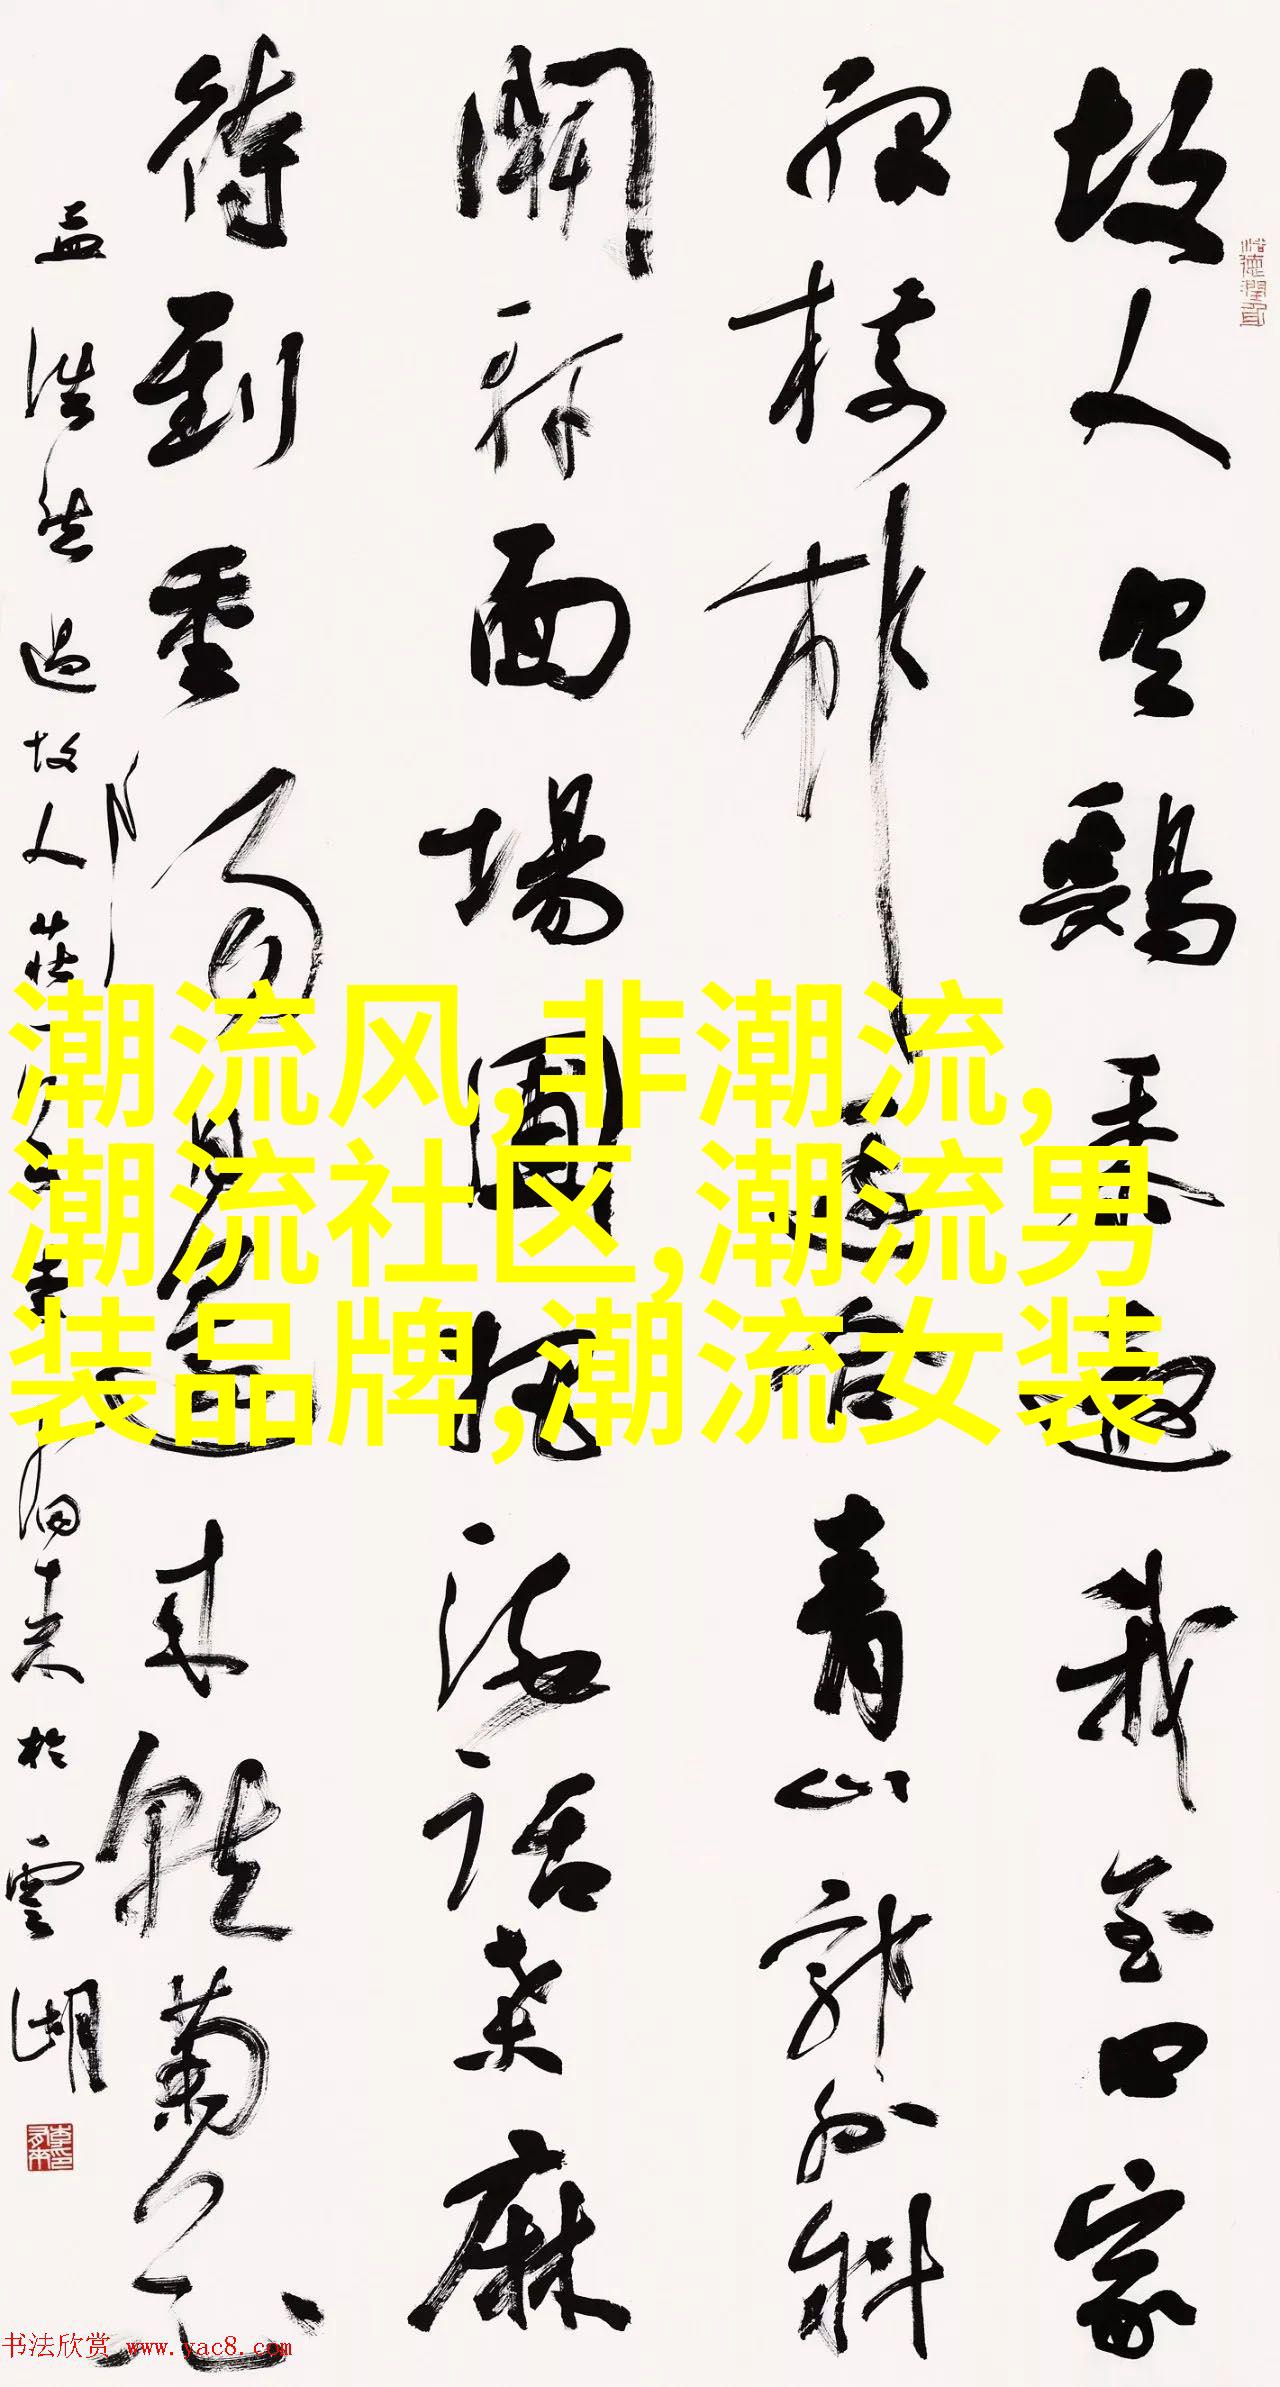 故人具鷄黍邀我至田家
緑樹村邊合青山郭外斜
開軒面場圃把酒話桑麻
待到重陽日還來就菊花
孟浩然過故人莊來於雲湖
潮流风,非潮流,
潮流社区,潮流男
装品牌,潮流女装
书法欣赏 www.yac8.com